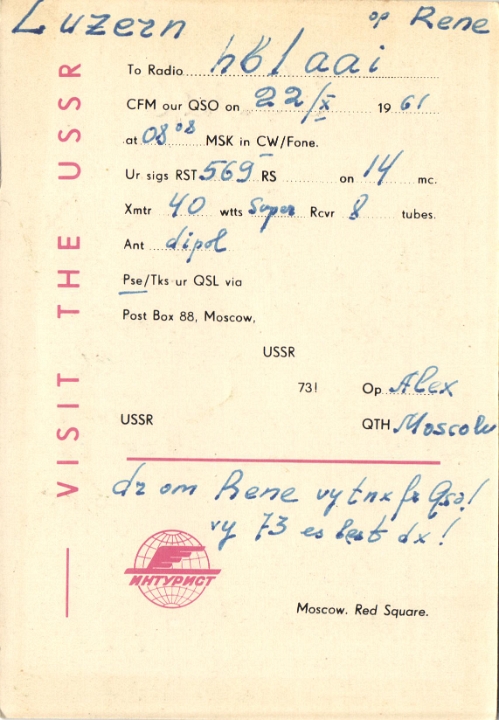 Luzern op Rene
To Radio hb1aai
CFM our QSO on 22/X 1961
at 08 08 MSK in CW/Fone.
Ur sigs RST 569 RS on 14 mc.
Xmtr 40 wtts Super Rcvr 8 tubes.
Ant dipol
Pse/Tks ur QSL via
Post Box 88, Moscow,
USSR
73! Op Alex
USSR QTH Moscow
dr om Rene vy tnx fr Qso!
vy 73 es best dx!
ИНТУРИСТ
Moscow. Red Square.
VISIT THE USSR